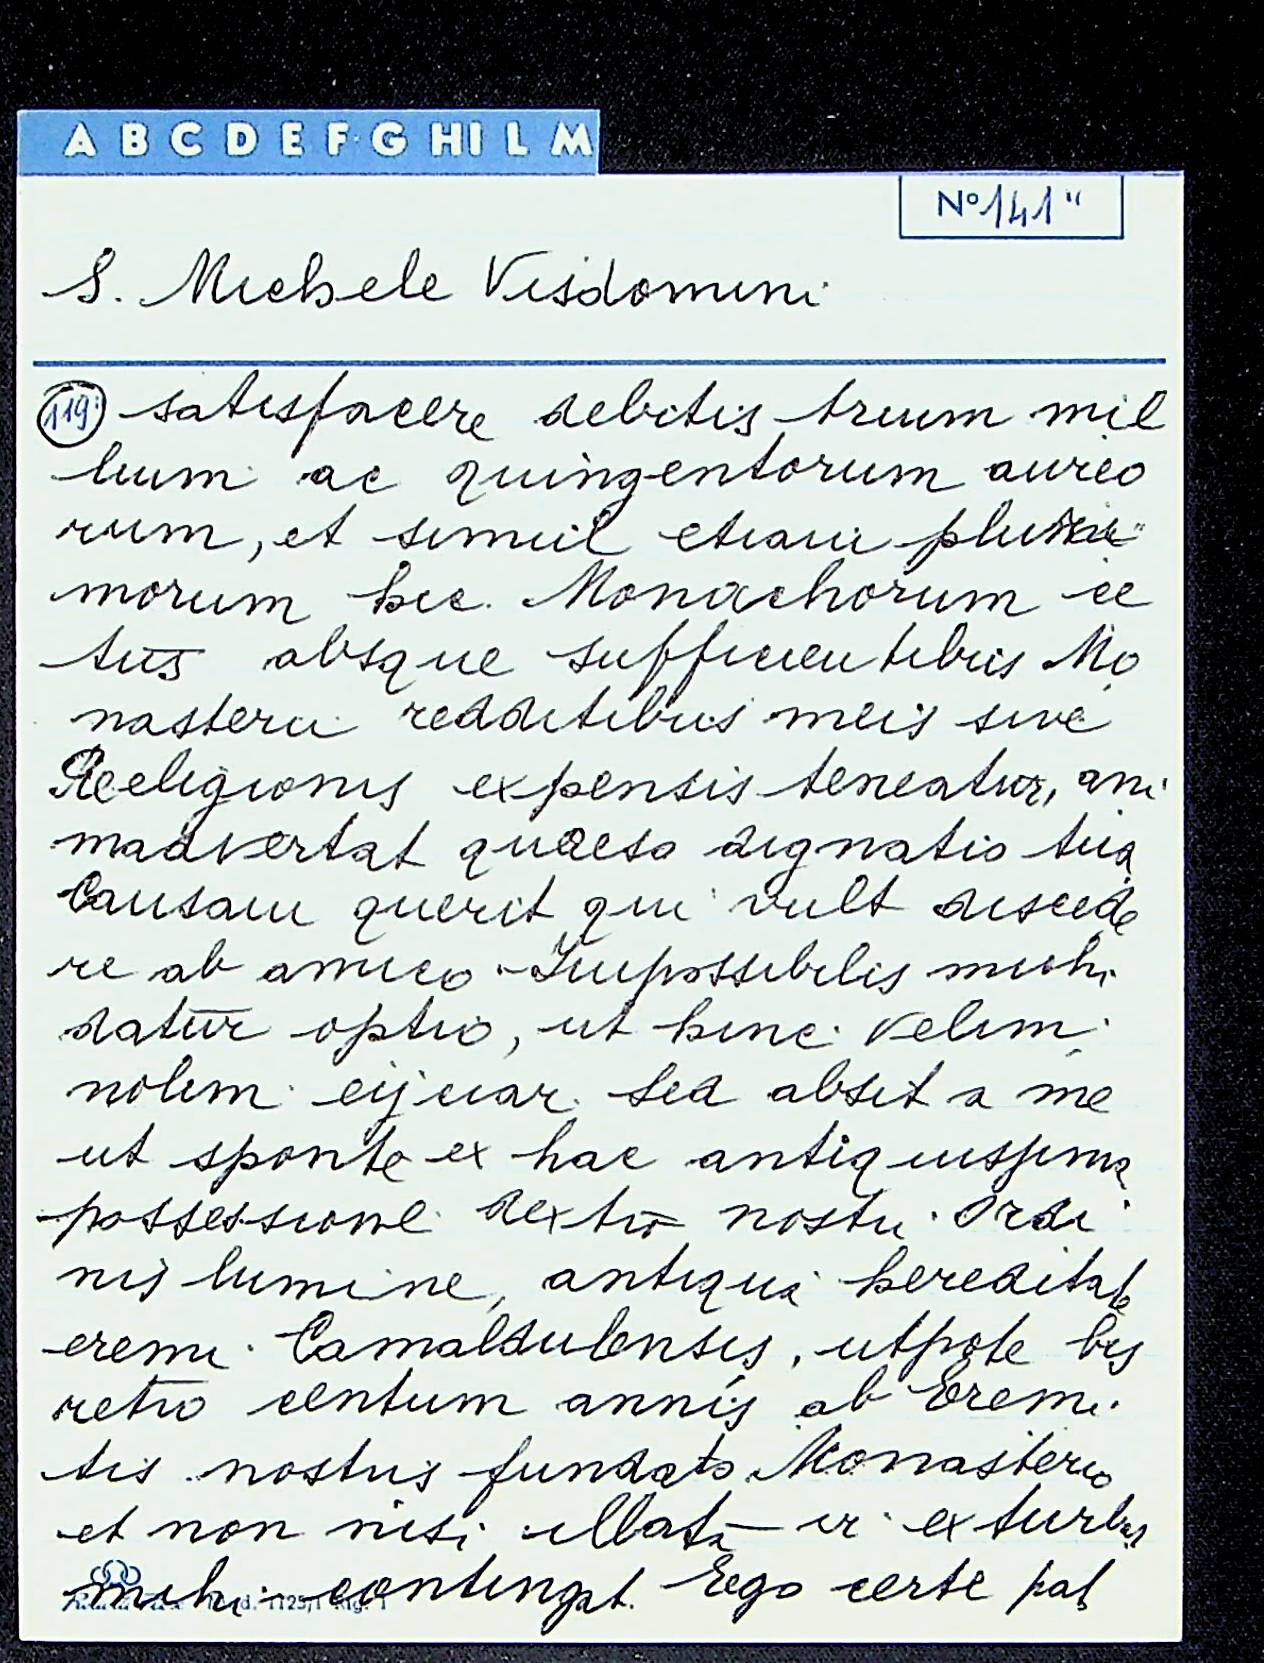 A B C D E F G H I L M
N° 141"
S. Michele Visdomini
119: satisfacere debitis trium mil
lium ac quingentorum aureo
rum, et simul etiam pluri
morum hic Monachorum ce
tus absque sufficientibus Mo
nasterii redditibus meis sive
Religionis expensis teneatur, ani
madvertat quaeso dignatio tua
Causam querit qui vult discede
re ab amico. Impossibilis michi
datur optio, ut hinc velim
nolim eijciar. Sed absit a me
ut sponte ex hac antiquissima
possessione dextro nostri Ordi
nis lumine, antiqua hereditate
eremi Camaldulensis, utpote bis
retro centum annis ab Eremi
tis nostris fundato Monasterio
et non nisi illata vi exturbas
michi contingat. Ego certe pat